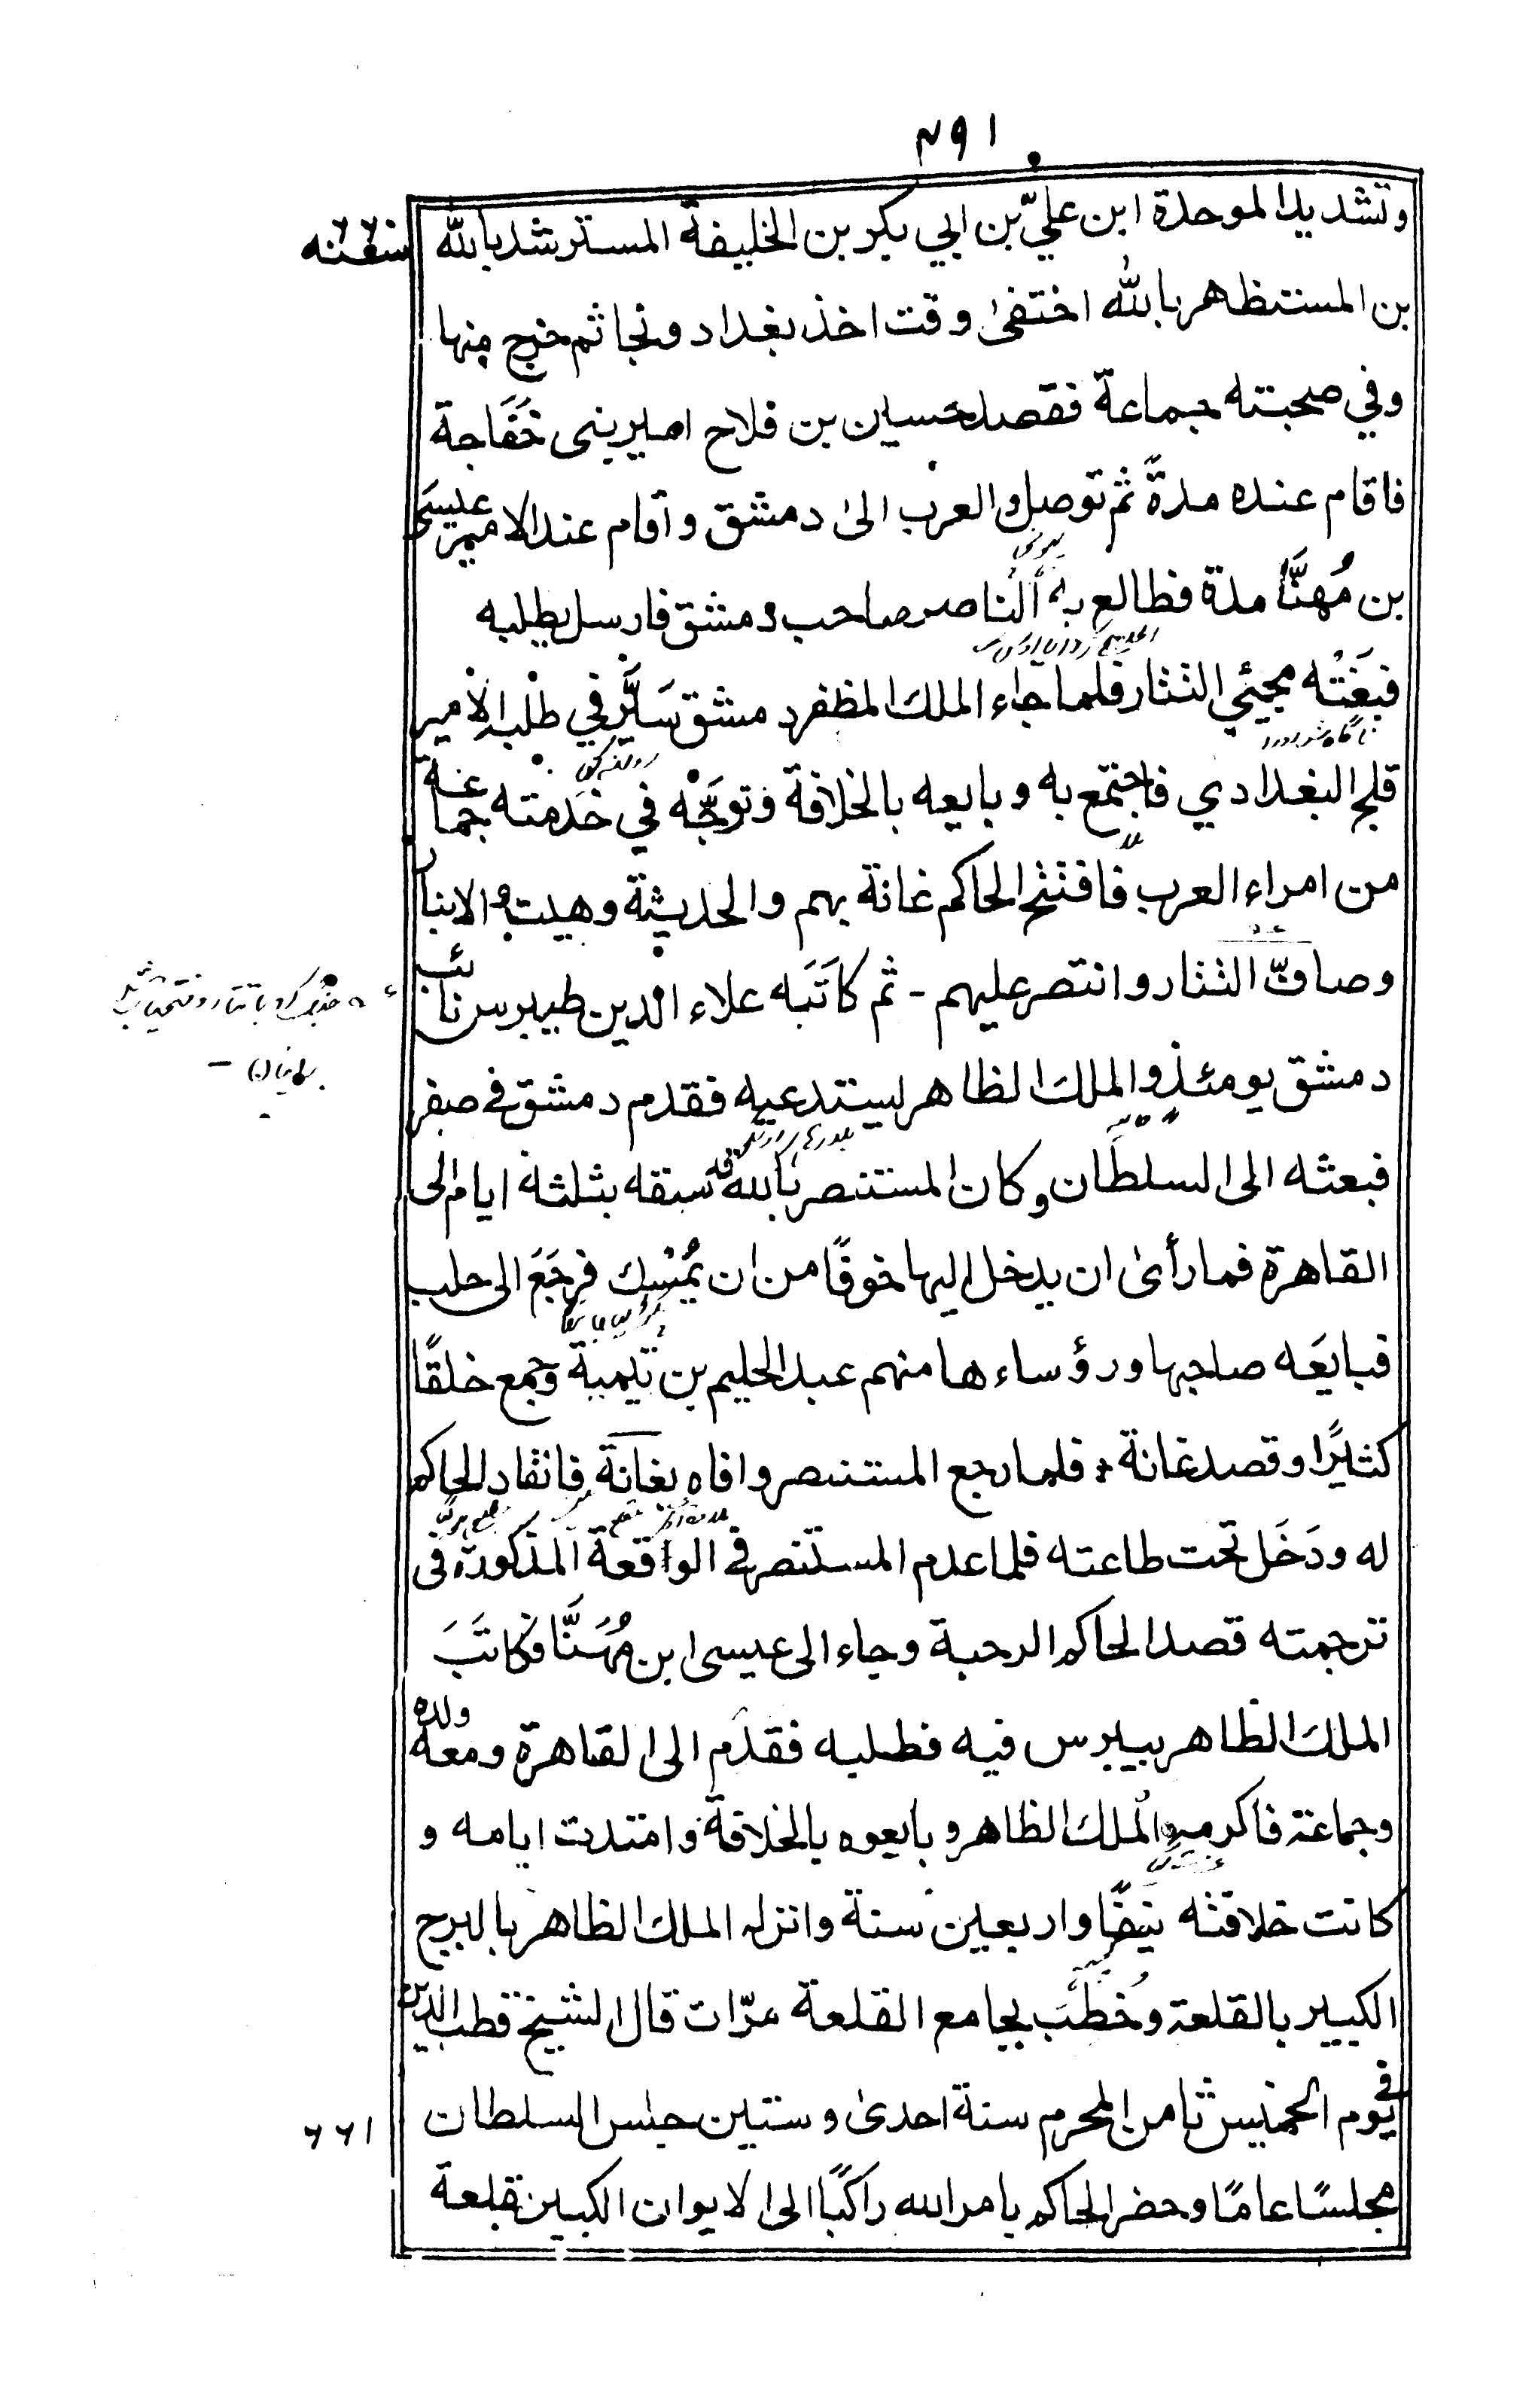 ٣٩١
وتشديد الموحدة ابن عليّ بن ابي بكر بن الخليفة المسترشد بالله
بن المستظهر بالله اختفىٰ وقت اخذ بغداد ونجا ثم خرج منها
وفي صحبته جماعة فقصد حسين بن فلاح امير بنى خَفَاجة
فاقام عنده مدةً ثم توصل والعرب الىٰ دمشق واقام عند الامير عيسَى
بن مُهنَّا مدة فطالع به الناصر صاحب دمشق فارسل يطلبه
فبَغَتْه مجيئي التتار فلما جاء الملك المظفر دمشق سَيَّر في طلبه الامير
قلج البغدادي فاجتمع به وبايعه بالخلافة وتوجَّه في خدمته جماعة
من امراء العرب فافتتح الحاكم غانة بهم والحديثة وهيت والانبار
وصافّ التتار وانتصر عليهم - ثم كاتَبَه علاء الدين طيبرس نائب
دمشق يومئذٍ والملك الظاهر يستدعيه فقدم دمشق في صفر
فبعثه الى السلطان وكان المستنصر بالله قد سبقه بثلثة ايام الى
القاهرة فما رأىٰ ان يدخل اليها خوفًا من ان يُمْسِك فرجَعَ الى حلب
فبايَعَه صاحبها ورؤساءها منهم عبد الحليم بن تيمية وجمع خلقًا
كثيرًا وقصد غانة فلما رجع المستنصر وافاه بغانة فانقاد الحاكم
له ودَخَل تحت طاعته فلما عدم المستنصر في الواقعة المذكورة فى
ترجمته قصد الحاكم الرحبة وجاء الى عيسى ابن مُهَنَّا فكاتَبَ
الملك الظاهر بيبرس فيه فطلبه فقدم الى القاهرة ومعه ولده
وجماعة فاكرمه الملك الظاهر وبايعوه بالخلافة وامتدت ايامه و
كانت خلافته نيفًا واربعين سنة وانزله الملك الظاهر بالبرج
الكبير بالقلعة وخُطَبَ بجامع القلعة مرّات قال الشيخ قطب الدين
في يوم الخميس ثامن المحرم سنة احدىٰ وستين جلس السلطان
٦٦١
مجلسًا عامًا وحضر الحاكم بامر الله راكبًا الى الايوان الكبير بقلعة